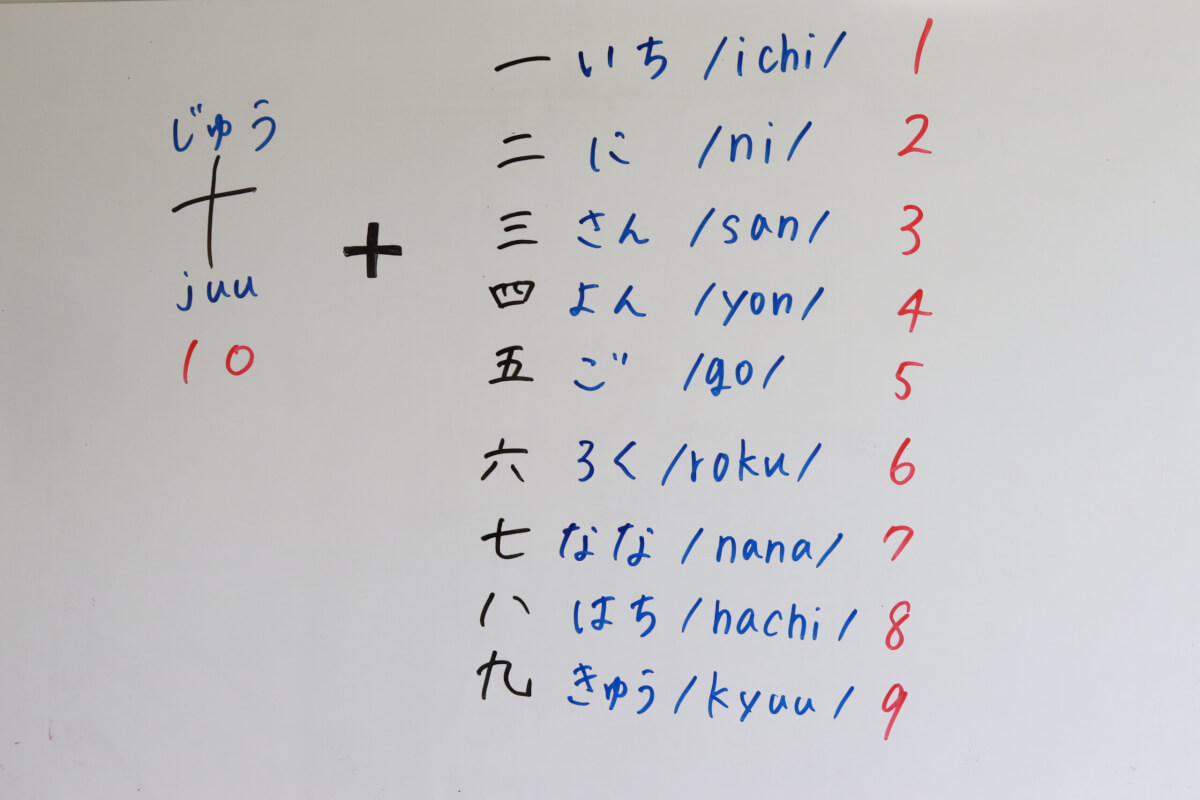 じゅう
十
juu
10
+
一 いち /ichi/ 1
二 に /ni/ 2
三 さん /san/ 3
四 よん /yon/ 4
五 ご /go/ 5
六 ろく /roku/ 6
七 なな /nana/ 7
八 はち /hachi/ 8
九 きゅう /kyuu/ 9